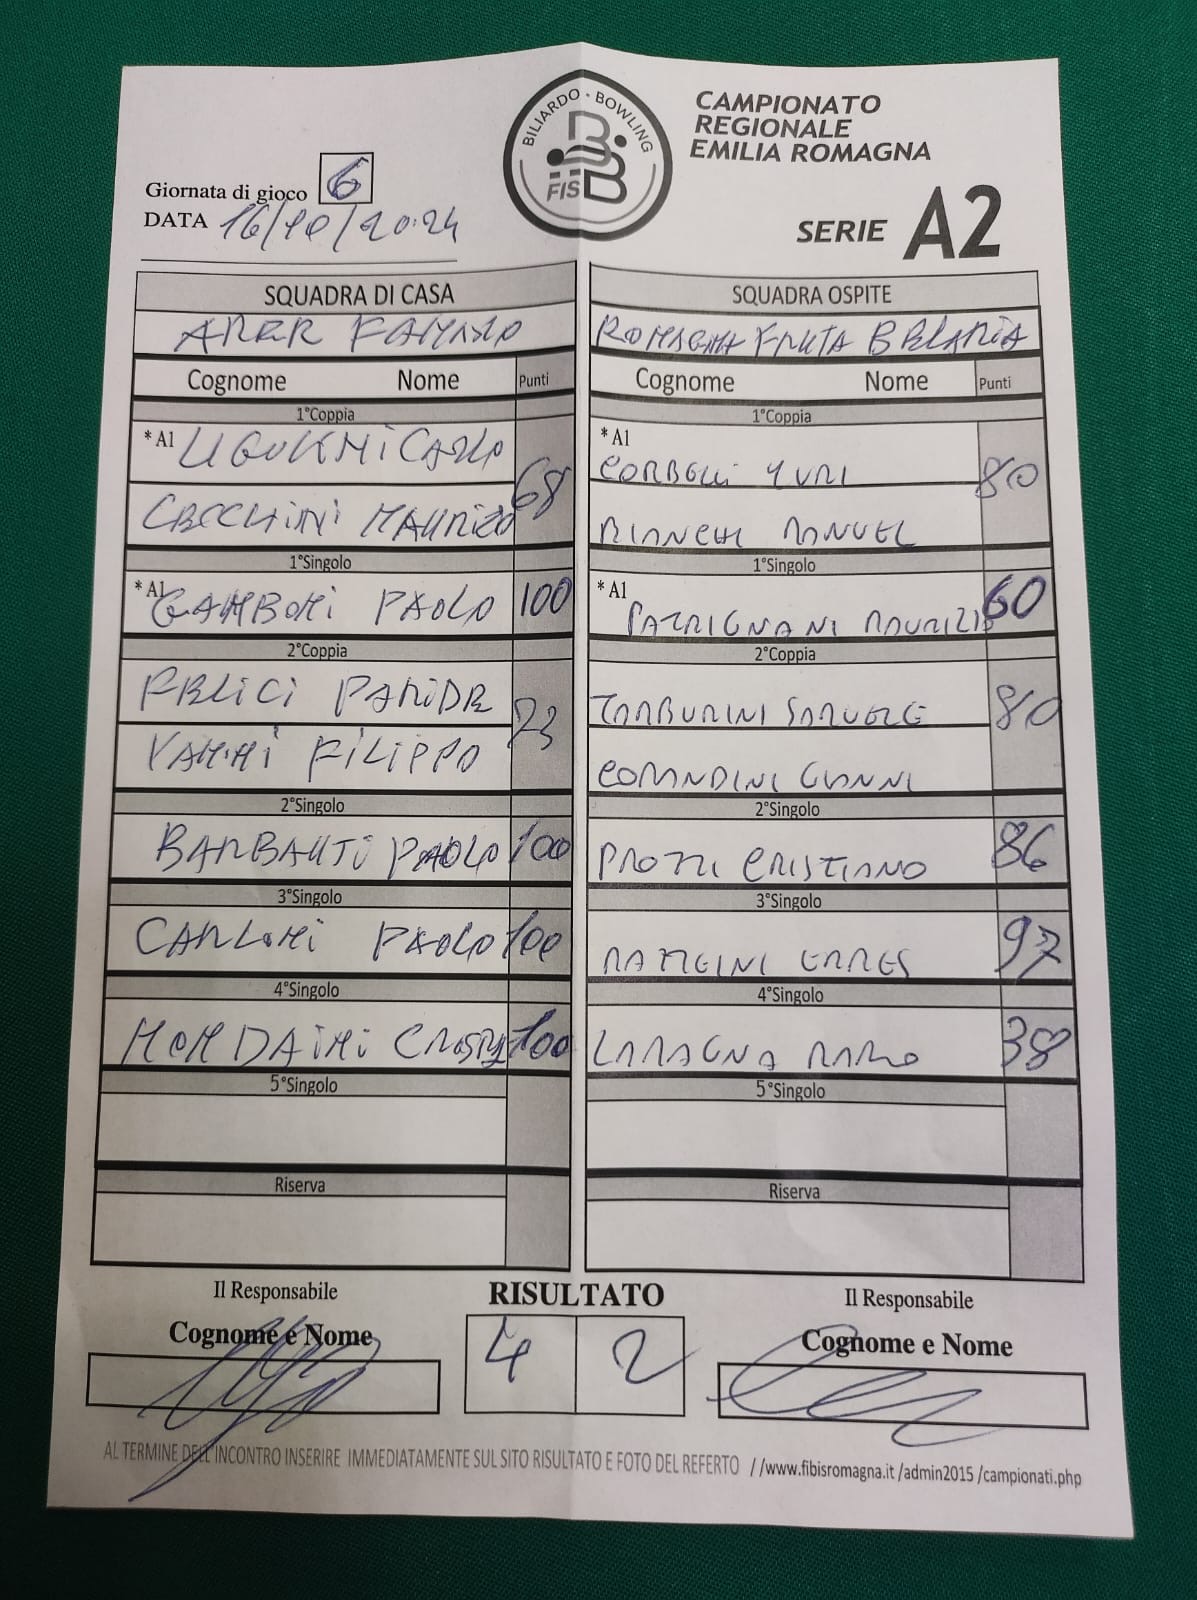 BILIARDO - BOWLING
FISBB
CAMPIONATO
REGIONALE
EMILIA ROMAGNA
SERIE A2
Giornata di gioco 6
DATA 16/10/2024
SQUADRA DI CASA SQUADRA OSPITE
ROMAGNA FRUTA BELARIA
Cognome Nome Punti Cognome Nome Punti
1°Coppia 1°Coppia
*A1 UGOLINI CARLO 68 *A1 CORBELLI YURI 80
CECCHINI MAURIZIO BIANCHI MANUEL
1°Singolo 1°Singolo
*A1 GAMBONI PAOLO 100 *A1 PATRIGNANI MAURIZIO 60
2°Coppia 2°Coppia
FELICI PARIDE 73 TAMBURINI SAMUELE 80
VANNI FILIPPO COMANDINI GIANNI
2°Singolo 2°Singolo
PAOLO 100 CRISTIANO 86
3°Singolo 3°Singolo
CARLONI PAOLO 100 MAZZINI ERMES 97
4°Singolo 4°Singolo
MONDAINI 100 LASAGNA MARIO 38
5°Singolo 5°Singolo
Riserva Riserva
Il Responsabile RISULTATO Il Responsabile
Cognome e Nome 4 2 Cognome e Nome
AL TERMINE DELL'INCONTRO INSERIRE IMMEDIATAMENTE SUL SITO RISULTATO E FOTO DEL REFERTO //www.fibisromagna.it /admin2015 /campionati.php